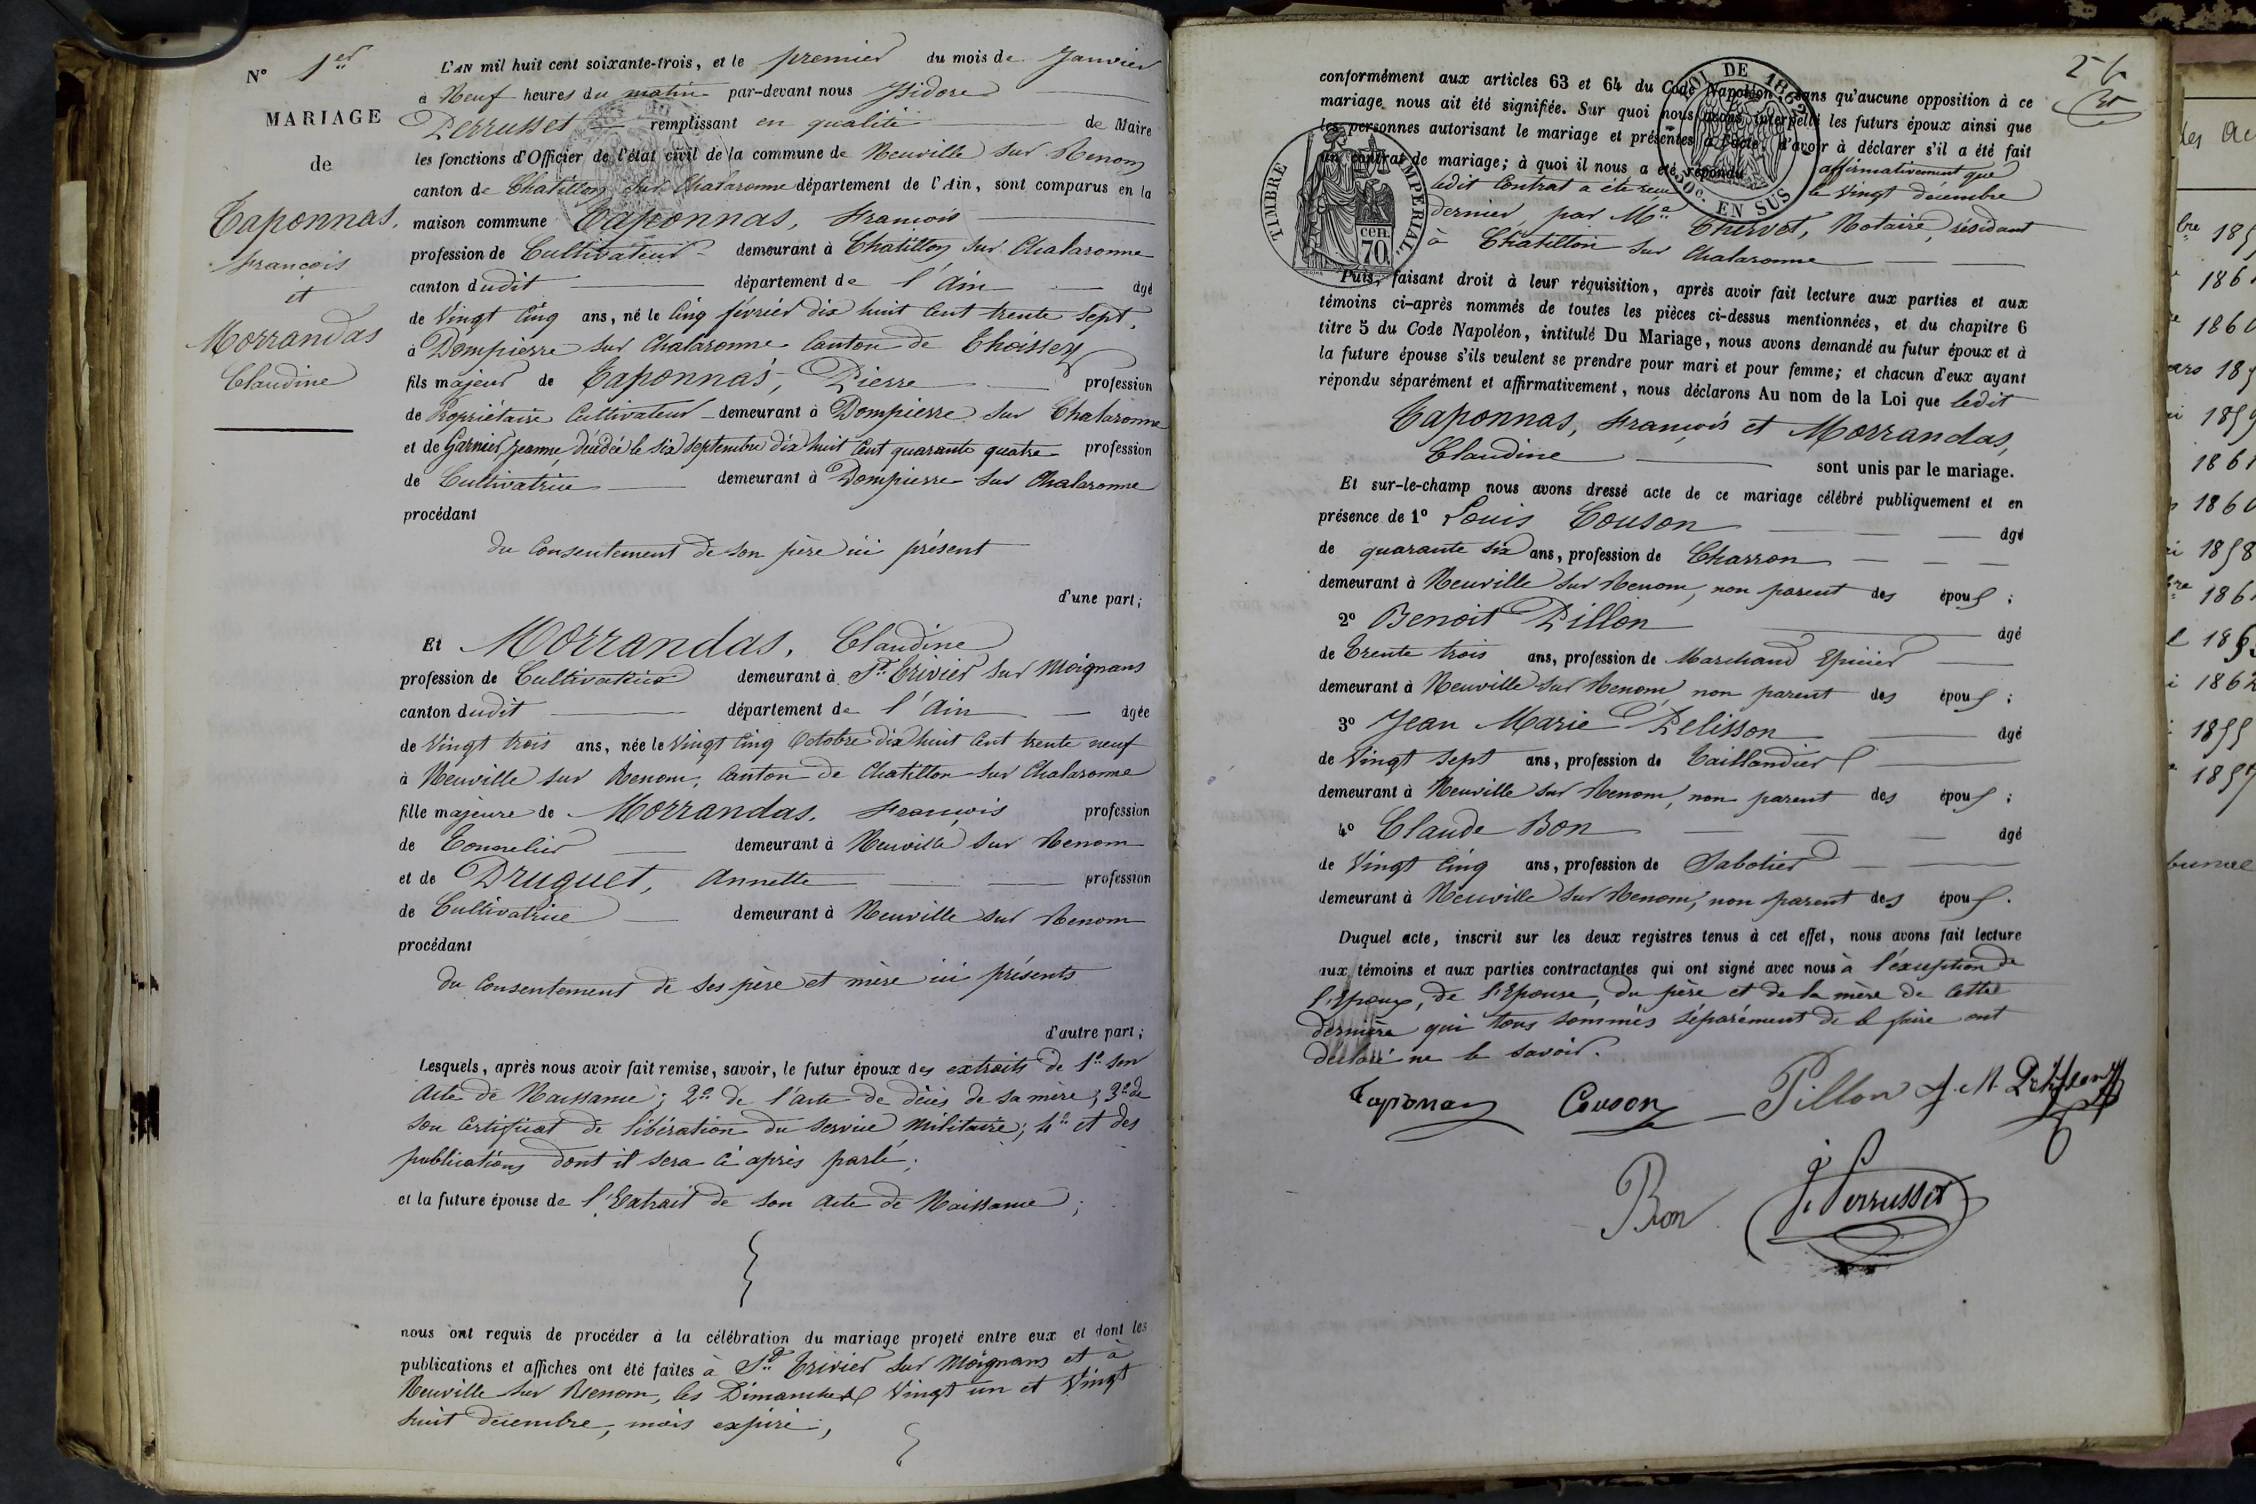 N° 1er
MARIAGE
de
Taponnas,
François
et
Morrandas
Claudine
L'AN mil huit cent soixante-trois, et le premier du mois de Janvier
à Neuf heures du matin par-devant nous Isidore
Perrusset remplissant en qualité de Maire
les fonctions d'Officier de l'état civil de la commune de Neuville sur Renom
canton de Chatillon sur Chalaronne département de l'Ain, sont comparus en la
maison commune Taponnas, François
profession de Cultivateur demeurant à Chatillon sur Chalaronne
canton dudit département de l'Ain âgé
de Vingt Cinq ans, né le Cinq février dix huit Cent trente sept,
à Dompierre sur Chalaronne Canton de Thoissey
fils majeur de Taponnas, Pierre profession
de Propriétaire Cultivateur demeurant à Dompierre sur Chalaronne
et de Garnier, Jeanne, décédée le six septembre dix huit Cent quarante quatre profession
de Cultivatrice demeurant à Dompierre sur Chalaronne
procédant
du Consentement de son père ici présent
d'une part;
Et Morrandas, Claudine
profession de Cultivatrice demeurant à St. Trivier sur Moignans
canton dudit département de l'Ain âgée
de Vingt trois ans, née le Vingt Cinq Octobre dix huit Cent trente neuf
à Neuville sur Renom, Canton de Chatillon sur Chalaronne
fille majeure de Morrandas, François profession
de Tonnelier demeurant à Neuville sur Renom
et de Druguet, Annette profession
de Cultivatrice demeurant à Neuville sur Renom
procédant
du Consentement de ses père et mère ici présents
d'autre part;
Lesquels, après nous avoir fait remise, savoir, le futur époux des extraits de 1° son
Acte de Naissance; 2° de l'acte de décès de sa mère; 3° de
son Certificat de libération du service Militaire; 4° et des
publications dont il sera ci après parlé;
et la future épouse de l'Extrait de son Acte de Naissance;
nous ont requis de procéder à la célébration du mariage projeté entre eux et dont les
publications et affiches ont été faites à St. Trivier sur Moignans et à
Neuville sur Renom, les Dimanches Vingt un et Vingt
huit décembre, mois expiré;
conformément aux articles 63 et 64 du Code Napoléon, sans qu'aucune opposition à ce
mariage nous ait été signifiée. Sur quoi nous avons interpellé les futurs époux ainsi que
les personnes autorisant le mariage et présentes à l'acte, d'avoir à déclarer s'il a été fait
un contrat de mariage; à quoi il nous a été répondu affirmativement que
ledit Contrat a été reçu le Vingt décembre
dernier, par Me. Thervet, Notaire, résidant
à Chatillon sur Chalaronne
LOI DE 1862
50c. EN SUS
TIMBRE IMPERIAL
CEN. 70
Puis, faisant droit à leur réquisition, après avoir fait lecture aux parties et aux
témoins ci-après nommés de toutes les pièces ci-dessus mentionnées, et du chapitre 6
titre 5 du Code Napoléon, intitulé Du Mariage, nous avons demandé au futur époux et à
la future épouse s'ils veulent se prendre pour mari et pour femme; et chacun d'eux ayant
répondu séparément et affirmativement, nous déclarons Au nom de la Loi que ledit
Taponnas, François et Morrandas,
Claudine sont unis par le mariage.
Et sur-le-champ nous avons dressé acte de ce mariage célébré publiquement et en
présence de 1° Louis Couson âgé
de quarante six ans, profession de Charron
demeurant à Neuville sur Renom, non parent des époux;
2° Benoit Pillon âgé
de Trente trois ans, profession de Marchand Epicier
demeurant à Neuville sur Renom, non parent des époux;
3° Jean Marie Pelisson âgé
de Vingt sept ans, profession de Taillandier
demeurant à Neuville sur Renom, non parent des époux;
4° Claude Bon âgé
de Vingt Cinq ans, profession de Sabotier
demeurant à Neuville sur Renom, non parent des époux.
Duquel acte, inscrit sur les deux registres tenus à cet effet, nous avons fait lecture
aux témoins et aux parties contractantes qui ont signé avec nous à l'éxception de
l'Epoux, de l'Epouse, du père et de la mère de cette
dernière qui tous sommés séparément de le faire ont
déclaré ne le savoir.
Taponas Couson Pillon J. M. Pelisson
Bon J. Perrusset